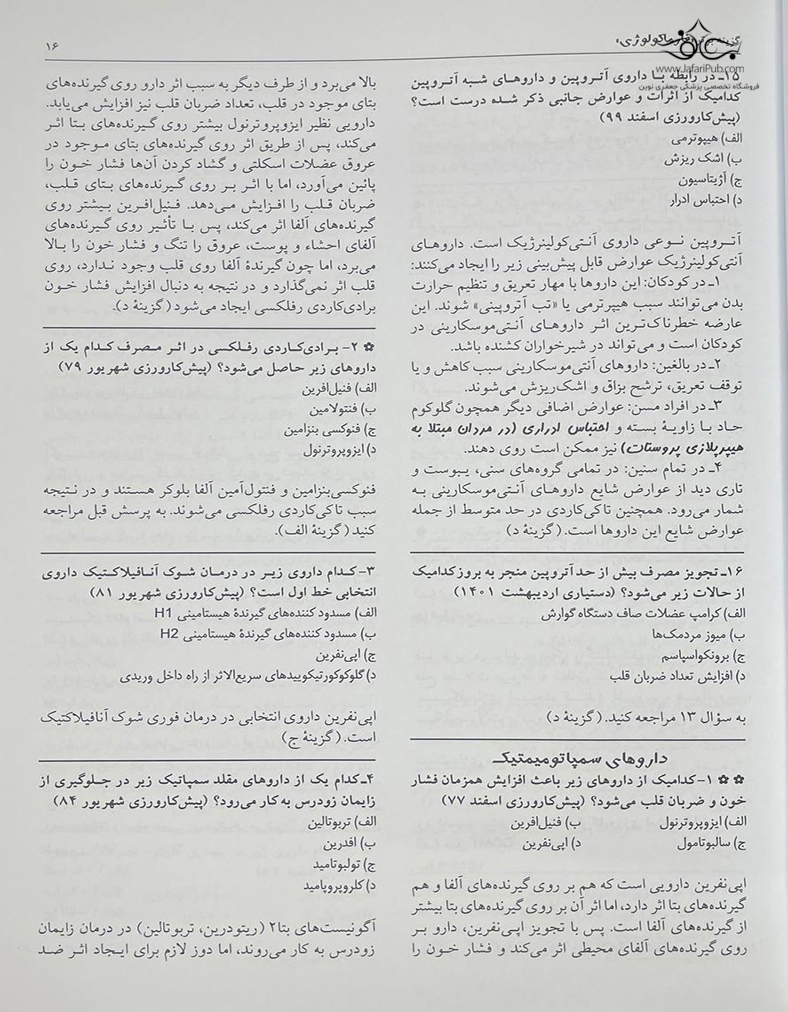 گزینه برتر «فارماکولوژی»
۱۶
www.JafariPub.com
فروشگاه تخصصی پزشکی جعفری نوین
۱۵ـ در رابطه با داروی آتروپین و داروهای شبه آتروپین
کدامیک از اثرات و عوارض جانبی ذکر شده درست است؟
(پیش‌کارورزی اسفند ۹۹)
الف) هیپوترمی
ب) اشک ریزش
ج) آژیتاسیون
د) احتباس ادرار
آتروپین نوعی داروی آنتی‌کولینرژیک است. داروهای
آنتی‌کولینرژیک عوارض قابل پیش‌بینی زیر را ایجاد می‌کنند:
۱ـ در کودکان: این داروها با مهار تعریق و تنظیم حرارت
بدن می‌توانند سبب هیپرترمی یا «تب آتروپینی» شوند. این
عارضه خطرناک‌ترین اثر داروهای آنتی‌موسکارینی در
کودکان است و می‌تواند در شیرخواران کشنده باشد.
۲ـ در بالغین: داروهای آنتی‌موسکارینی سبب کاهش و یا
توقف تعریق، ترشح بزاق و اشک‌ریزش می‌شوند.
۳ـ در افراد مسن: عوارض اضافی دیگر همچون گلوکوم
حاد با زاویهٔ بسته و احتباس ادراری (در مردان مبتلا به
هیپرپلازی پروستات) نیز ممکن است روی دهند.
۴ـ در تمام سنین: در تمامی گروه‌های سنی، یبوست و
تاری دید از عوارض شایع داروهای آنتی‌موسکارینی به
شمار می‌رود. همچنین تاکی‌کاردی در حد متوسط از جمله
عوارض شایع این داروها است. (گزینهٔ د)
۱۶ـ تجویز مصرف بیش از حد آتروپین منجر به بروز کدامیک
از حالات زیر می‌شود؟ (دستیاری اردیبهشت ۱۴۰۱)
الف) کرامپ عضلات صاف دستگاه گوارش
ب) میوز مردمک‌ها
ج) برونکواسپاسم
د) افزایش تعداد ضربان قلب
به سؤال ۱۳ مراجعه کنید. (گزینهٔ د)
داروهای سمپاتومیمتیک
✿ ✿ ۱-کدامیک از داروهای زیر باعث افزایش همزمان فشار
خون و ضربان قلب می‌شود؟ (پیش‌کارورزی اسفند ۷۷)
الف) ایزوپروترنول ب) فنیل‌افرین
ج) سالبوتامول د) اپی‌نفرین
اپی‌نفرین دارویی است که هم بر روی گیرنده‌های آلفا و هم
گیرنده‌های بتا اثر دارد، اما اثر آن بر روی گیرنده‌های بتا بیشتر
از گیرنده‌های آلفا است. پس با تجویز اپی‌نفرین، دارو بر
روی گیرنده‌های آلفای محیطی اثر می‌کند و فشار خون را
بالا می‌برد و از طرف دیگر به سبب اثر دارو روی گیرنده‌های
بتای موجود در قلب، تعداد ضربان قلب نیز افزایش می‌یابد.
دارویی نظیر ایزوپروترنول بیشتر روی گیرنده‌های بتا اثر
می‌کند، پس از طریق اثر روی گیرنده‌های بتای موجود در
عروق عضلات اسکلتی و گشاد کردن آن‌ها فشار خون را
پائین می‌آورد، اما با اثر بر روی گیرنده‌های بتای قلب،
ضربان قلب را افزایش می‌دهد. فنیل‌افرین بیشتر روی
گیرنده‌های آلفا اثر می‌کند، پس با تأثیر روی گیرنده‌های
آلفای احشاء و پوست، عروق را تنگ و فشار خون را بالا
می‌برد، اما چون گیرندهٔ آلفا روی قلب وجود ندارد، روی
قلب اثر نمی‌گذارد و در نتیجه به دنبال افزایش فشار خون
برادی‌کاردی رفلکسی ایجاد می‌شود (گزینهٔ د).
✿ ۲- برادی‌کاردی رفلکسی در اثر مصرف کدام یک از
داروهای زیر حاصل می‌شود؟ (پیش‌کارورزی شهریور ۷۹)
الف) فنیل‌افرین
ب) فنتولامین
ج) فنوکسی بنزامین
د) ایزوپروترنول
فنوکسی‌بنزامین و فنتول‌آمین آلفا بلوکر هستند و در نتیجه
سبب تاکی‌کاردی رفلکسی می‌شوند. به پرسش قبل مراجعه
کنید (گزینهٔ الف).
۳-کدام داروی زیر در درمان شوک آنافیلاکتیک داروی
انتخابی خط اول است؟ (پیش‌کارورزی شهریور ۸۱)
الف) مسدود کننده‌های گیرندهٔ هیستامینی H1
ب) مسدود کننده‌های گیرندهٔ هیستامینی H2
ج) اپی‌نفرین
د) گلوکوکورتیکوییدهای سریع‌الاثر از راه داخل وریدی
اپی‌نفرین داروی انتخابی در درمان فوری شوک آنافیلاکتیک
است. (گزینهٔ ج)
۴ـ کدام یک از داروهای مقلد سمپاتیک زیر در جلوگیری از
زایمان زودرس به کار می‌رود؟ (پیش‌کارورزی شهریور ۸۴)
الف) تربوتالین
ب) افدرین
ج) تولبوتامید
د) کلروپروپامید
آگونیست‌های بتا۲ (ریتودرین، تربوتالین) در درمان زایمان
زودرس به کار می‌روند، اما دوز لازم برای ایجاد اثر ضد